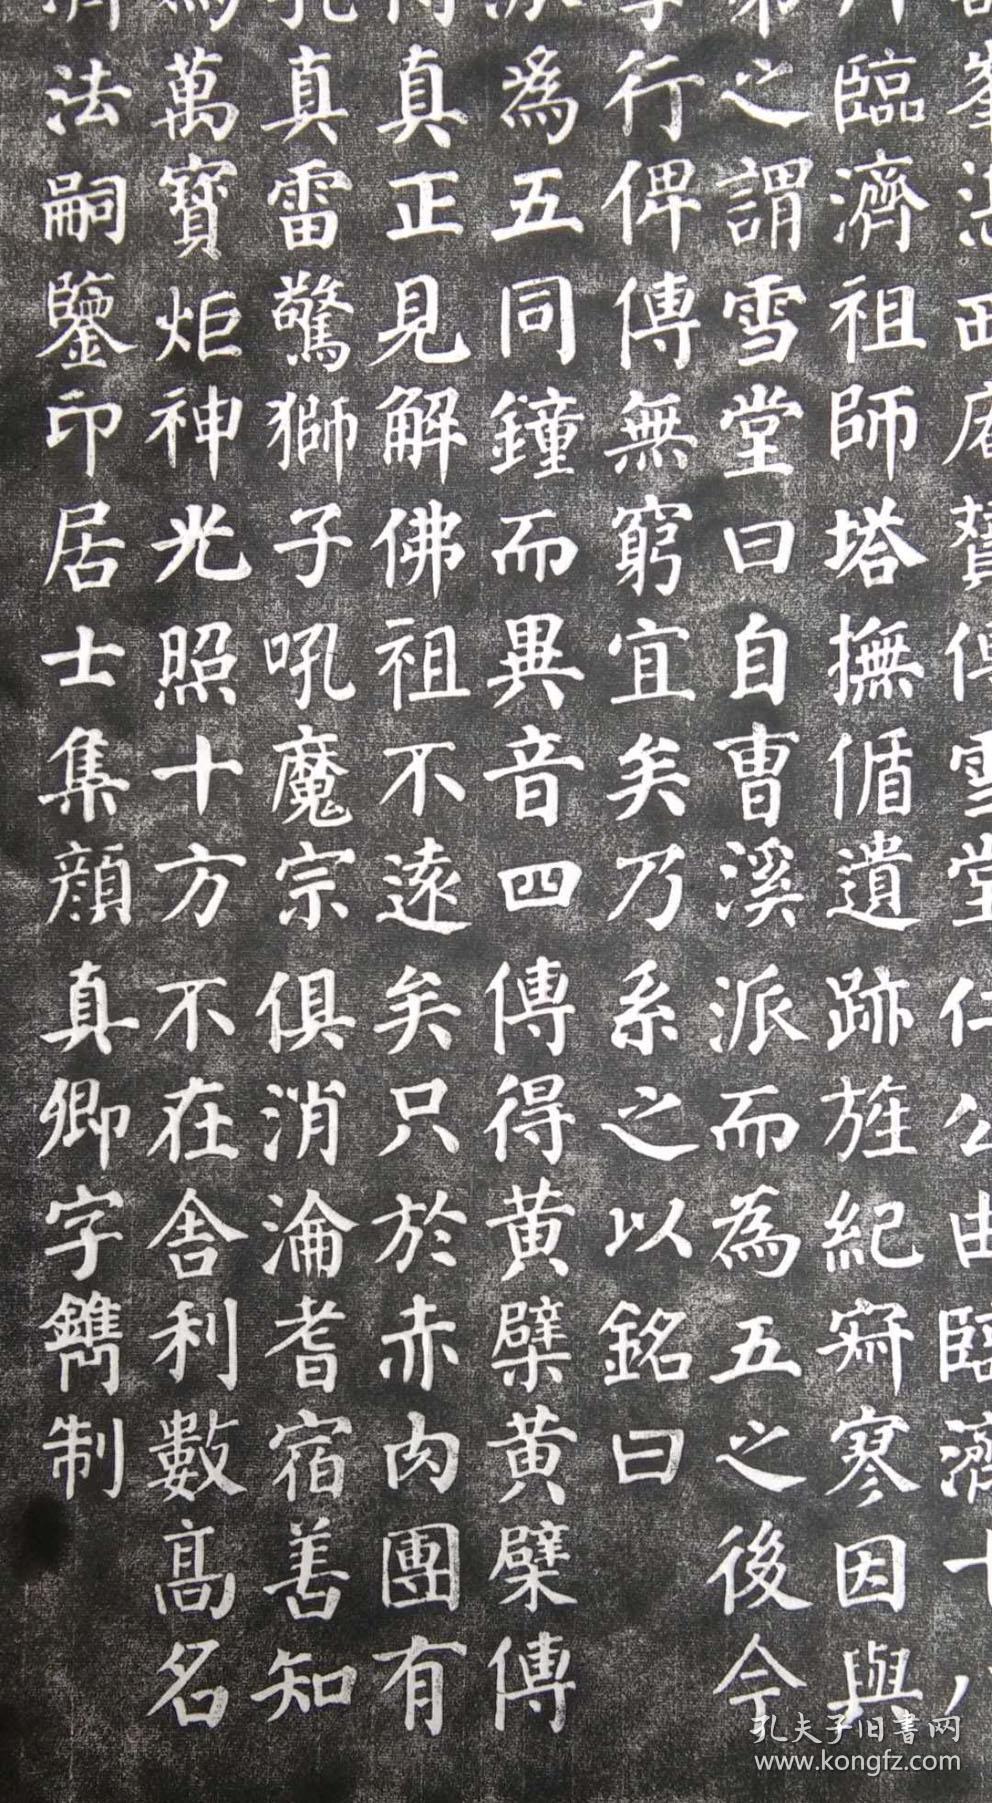 峯
西庵贊傳雪堂仁公由臨濟十八
臨濟祖師塔撫循遺跡旌紀寂寥因與
弟之謂雪堂曰自曹溪派而為五之後今
行俾傳無窮宜矣乃系之以銘曰
派為五同鐘而異音四傳得黄檗黄檗傳
真正見解佛祖不遠矣只於赤肉團有
孔真雷驚獅子吼魔宗俱消淪耆宿善知
為萬寶炬神光照十方不在舍利數髙名
濟法嗣鑒印居士集顔真卿字鐫制
孔夫子旧書网
www.kongfz.com